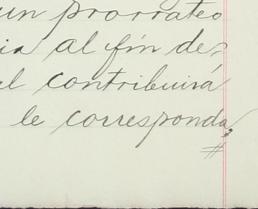 un prorrateo
ia al fin de
al contribuirá
le corresponda,
#